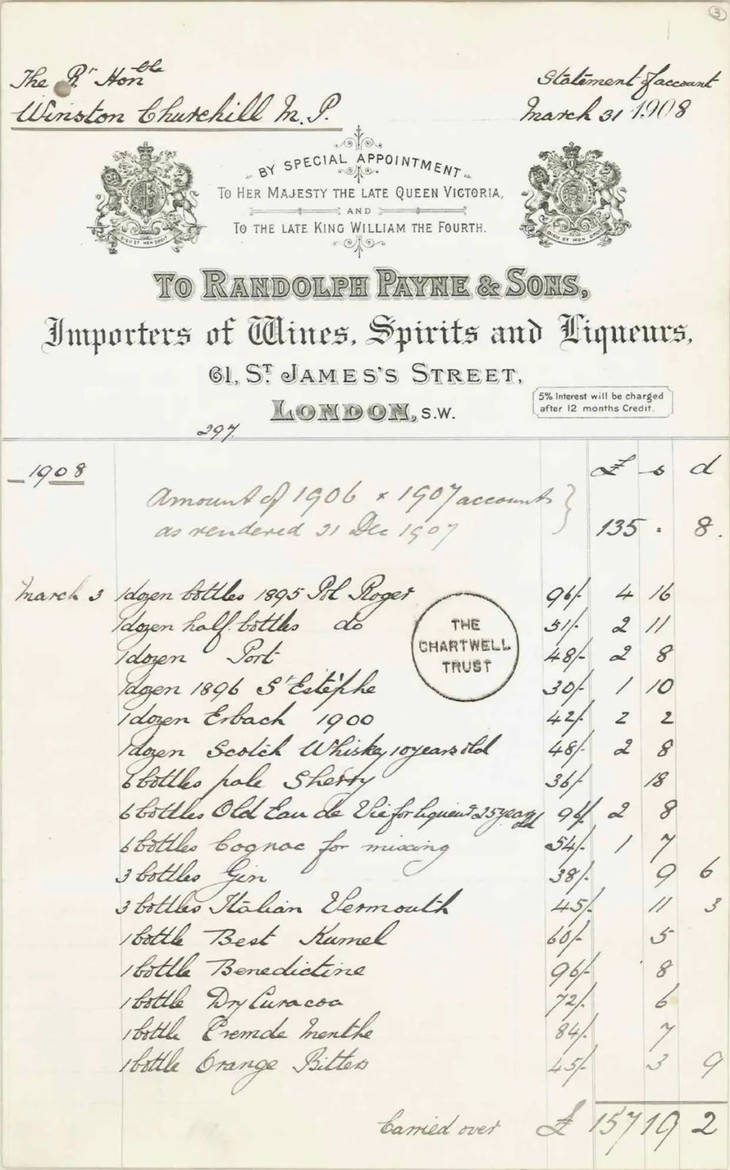 3
The Rt Honble
Winston Churchill M.P.
Statement of account
March 31 1908
BY SPECIAL APPOINTMENT
TO HER MAJESTY THE LATE QUEEN VICTORIA,
AND
TO THE LATE KING WILLIAM THE FOURTH.
DIEU ET MON DROIT
DIEU ET MON DROIT
TO RANDOLPH PAYNE & SONS,
Importers of Wines, Spirits and Liqueurs,
61, ST JAMES'S STREET,
LONDON, S.W.
5% Interest will be charged
after 12 months Credit.
297.
1908 £ s d
Amount of 1906 & 1907 accounts
as rendered 31 Dec 1907 135 " 8.
March 3 1 dozen bottles 1895 Pol Roger 96/- 4 16
1 dozen half bottles do 51/- 2 11
1 dozen Port 48/- 2 8
1 dozen 1896 St Estéphe 30/- 1 10
1 dozen Erbach 1900 42/- 2 2
1 dozen Scotch Whisky 10 years old 48/- 2 8
6 bottles pale Sherry 36/- 18
6 bottles Old Eau de Vie for liqueur 25 years old 96/- 2 8
6 bottles Cognac for mixing 54/- 1 7
3 bottles Gin 38/- 9 6
3 bottles Italian Vermouth 45/- 11 3
1 bottle Best Kumel 60/- 5
1 bottle Benedictine 96/- 8
1 bottle Dry Curacoa 72/- 6
1 bottle Creme de Menthe 84/- 7
1 bottle Orange Bitters 45/- 3 9
Carried over £ 157 19 2
THE
CHARTWELL
TRUST